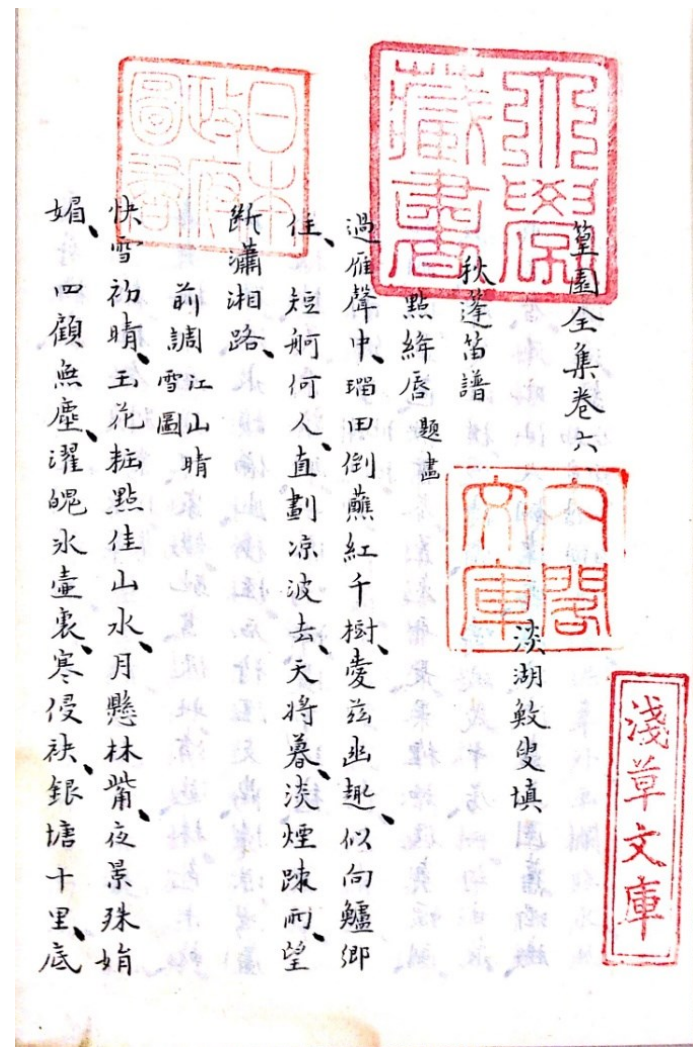 淺草文庫
大學藏書
日本政府圖書
内閣文庫
篁園全集卷六
淡湖敏叟填
秋蓬笛譜
點絳唇 題畫
過雁聲中、瑠田倒蘸紅千樹、愛茲幽趣、似向鱸鄉
住、短舸何人、直劃凉波去、天將暮、淡煙踈雨、望
斷瀟湘路、
前調 江山晴雪圖
快雪初晴、玉花粧點佳山水、月懸林觜、夜景殊娟
媚、四顧無塵、濯魄氷壺裏、寒侵袂、銀塘十里、底